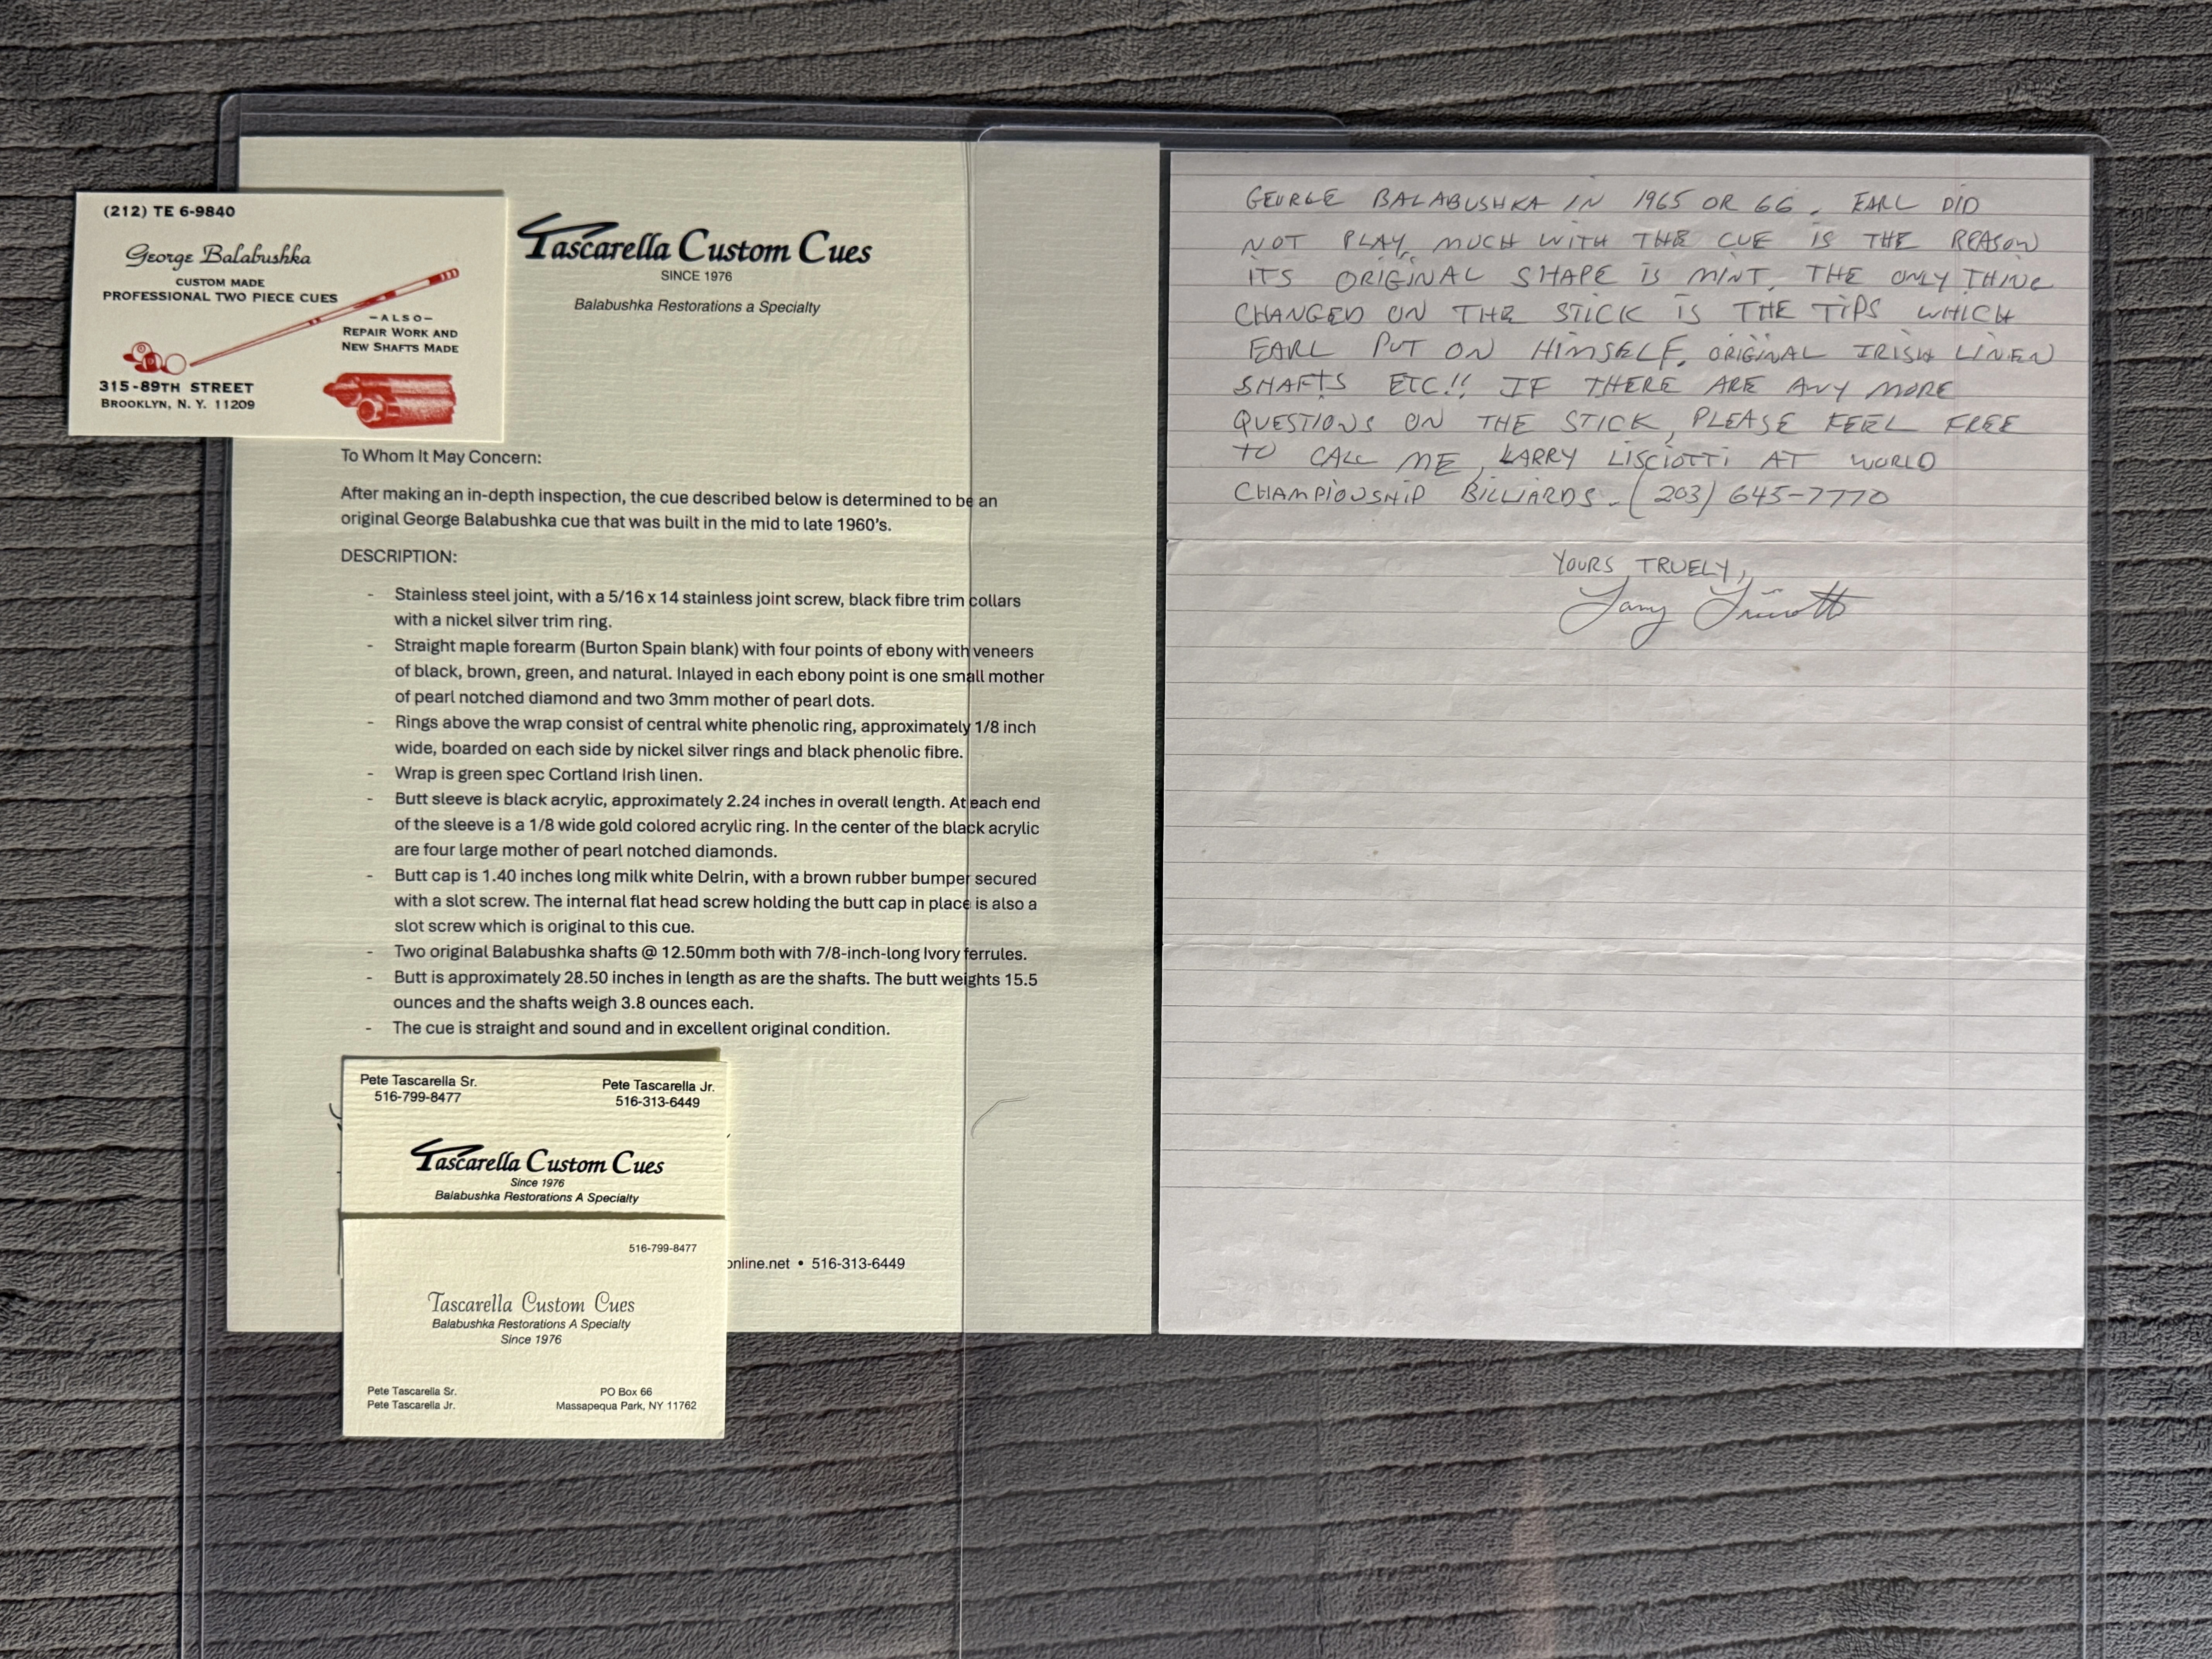 (212) TE 6-9840
George Balabushka
CUSTOM MADE
PROFESSIONAL TWO PIECE CUES
-ALSO-
REPAIR WORK AND
NEW SHAFTS MADE
315-89TH STREET
BROOKLYN, N. Y. 11209
Tascarella Custom Cues
SINCE 1976
Balabushka Restorations a Specialty
To Whom It May Concern:
After making an in-depth inspection, the cue described below is determined to be an
original George Balabushka cue that was built in the mid to late 1960's.
DESCRIPTION:
- Stainless steel joint, with a 5/16 x 14 stainless joint screw, black fibre trim collars
with a nickel silver trim ring.
- Straight maple forearm (Burton Spain blank) with four points of ebony with veneers
of black, brown, green, and natural. Inlayed in each ebony point is one small mother
of pearl notched diamond and two 3mm mother of pearl dots.
- Rings above the wrap consist of central white phenolic ring, approximately 1/8 inch
wide, boarded on each side by nickel silver rings and black phenolic fibre.
- Wrap is green spec Cortland Irish linen.
- Butt sleeve is black acrylic, approximately 2.24 inches in overall length. At each end
of the sleeve is a 1/8 wide gold colored acrylic ring. In the center of the black acrylic
are four large mother of pearl notched diamonds.
- Butt cap is 1.40 inches long milk white Delrin, with a brown rubber bumper secured
with a slot screw. The internal flat head screw holding the butt cap in place is also a
slot screw which is original to this cue.
- Two original Balabushka shafts @ 12.50mm both with 7/8-inch-long Ivory ferrules.
- Butt is approximately 28.50 inches in length as are the shafts. The butt weights 15.5
ounces and the shafts weigh 3.8 ounces each.
- The cue is straight and sound and in excellent original condition.
Pete Tascarella Sr.
516-799-8477
Pete Tascarella Jr.
516-313-6449
Tascarella Custom Cues
Since 1976
Balabushka Restorations A Specialty
516-799-8477
Tascarella Custom Cues
Balabushka Restorations A Specialty
Since 1976
Pete Tascarella Sr.
Pete Tascarella Jr.
PO Box 66
Massapequa Park, NY 11762
online.net • 516-313-6449
GEORGE BALABUSHKA IN 1965 OR 66. EARL DID
NOT PLAY MUCH WITH THE CUE IS THE REASON
ITS ORIGINAL SHAPE IS MINT. THE ONLY THING
CHANGED ON THE STICK IS THE TIPS WHICH
EARL PUT ON HIMSELF. ORIGINAL IRISH LINEN
SHAFTS ETC!! IF THERE ARE ANY MORE
QUESTIONS ON THE STICK, PLEASE FEEL FREE
TO CALL ME, LARRY LISCIOTTI AT WORLD
CHAMPIONSHIP BILLIARDS. (203) 645-7770
YOURS TRUELY,
Larry Lisciotti